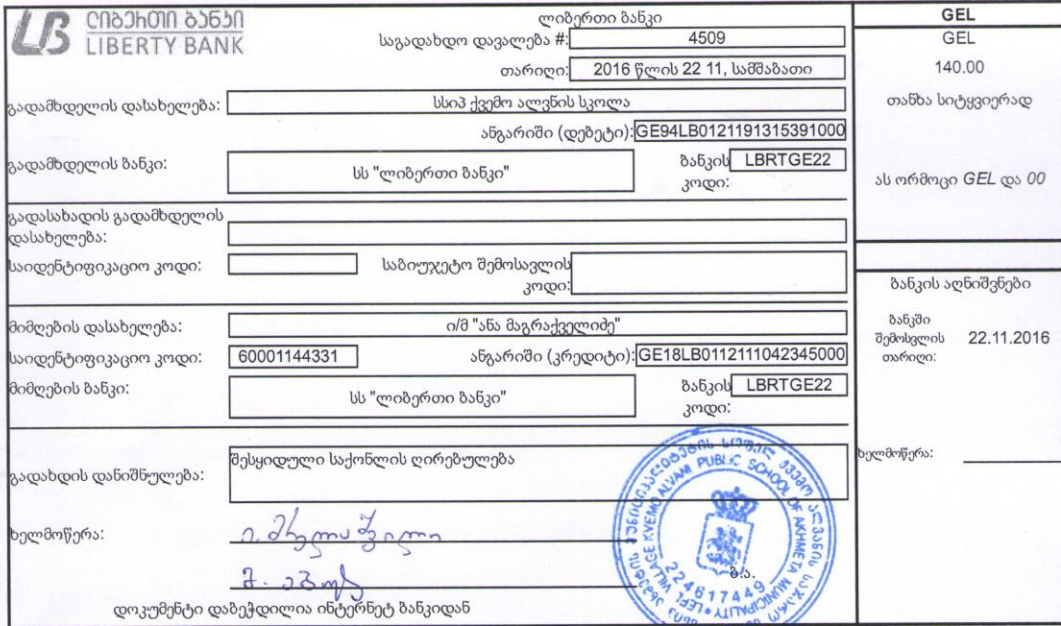 ლიბერთი ბანკი
LIBERTY BANK
ლიბერთი ბანკი
საგადახდო დავალება #: 4509
თარიღი: 2016 წლის 22 11, სამშაბათი
გადამხდელის დასახელება: სსიპ ქვემო ალვნის სკოლა
ანგარიში (დებეტი): GE94LB0121191315391000
გადამხდელის ბანკი: სს "ლიბერთი ბანკი" ბანკის კოდი: LBRTGE22
გადასახადის გადამხდელის
დასახელება:
საიდენტიფიკაციო კოდი: საბიუჯეტო შემოსავლის
კოდი:
მიმღების დასახელება: ი/მ "ანა მაგრაქველიძე"
საიდენტიფიკაციო კოდი: 60001144331 ანგარიში (კრედიტი): GE18LB0112111042345000
მიმღების ბანკი: სს "ლიბერთი ბანკი" ბანკის კოდი: LBRTGE22
გადახდის დანიშნულება: შესყიდული საქონლის ღირებულება
ხელმოწერა:
ბ.ა.
დოკუმენტი დაბეჭდილია ინტერნეტ ბანკიდან
GEL
GEL
140.00
თანხა სიტყვიერად
ას ორმოცი GEL და 00
ბანკის აღნიშვნები
ბანკში
შემოსვლის 22.11.2016
თარიღი:
ხელმოწერა:
LEPL VILLAGE KVEMO ALVANI PUBLIC SCHOOL OF AKHMETA MUNICIPALITY
224617449